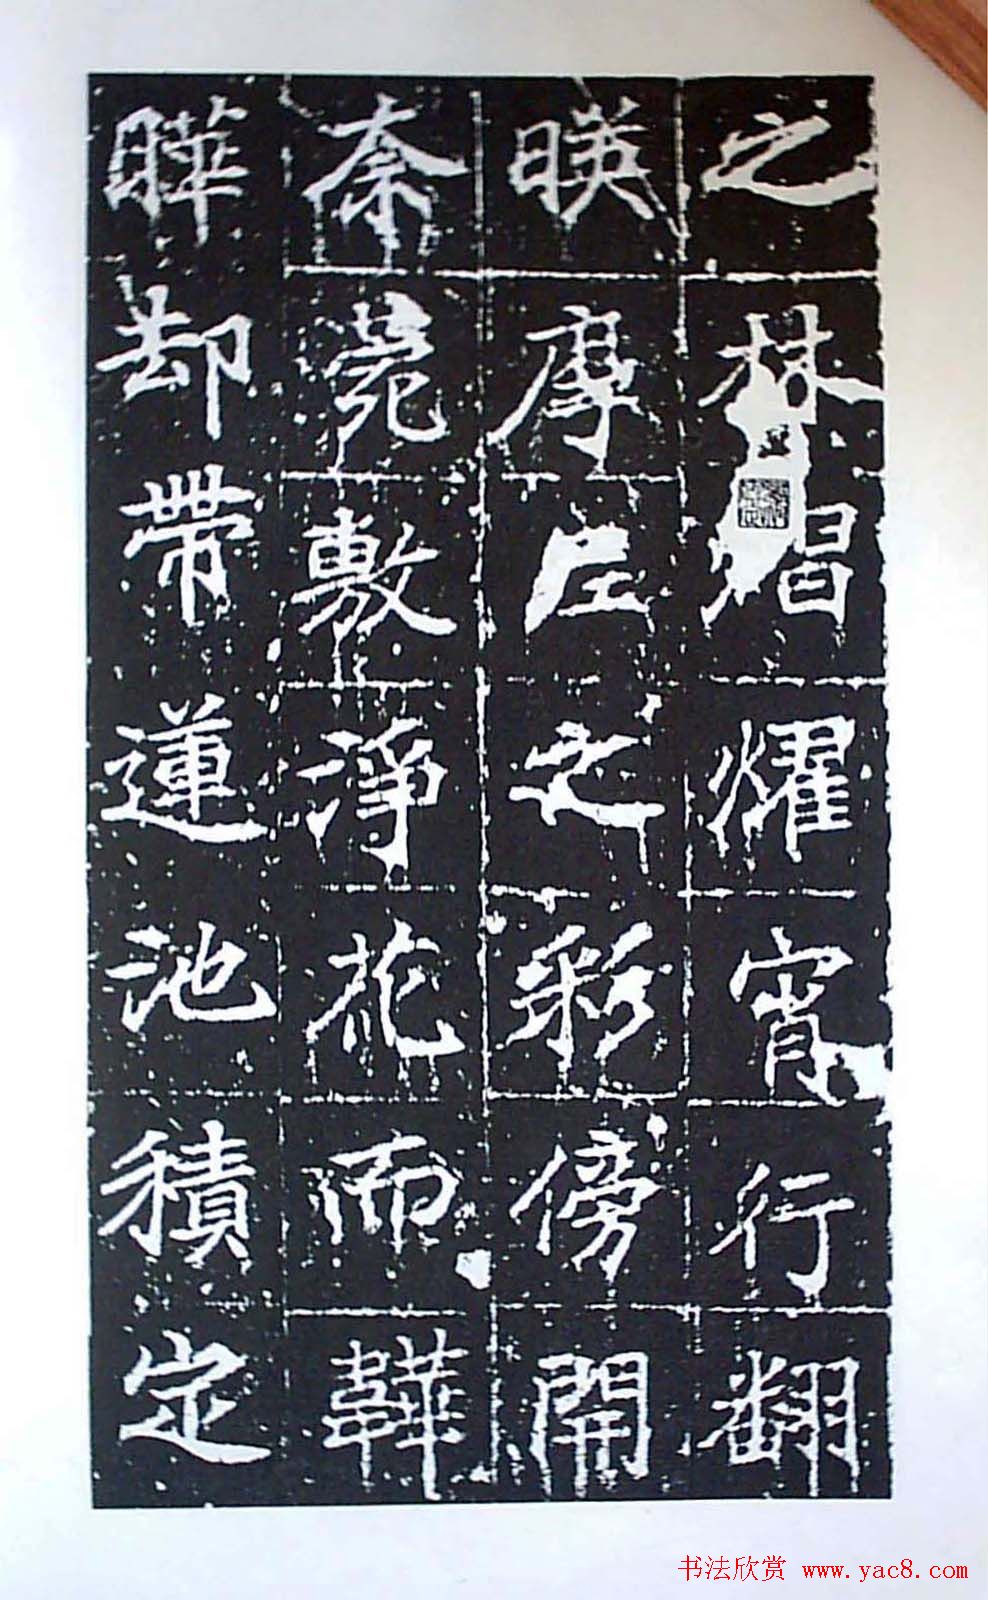 之林熠耀宵行翻
暎之彩傍開
柰菀敷淨花而韡
曄却帶蓮池積定
书法欣赏 www.yac8.com